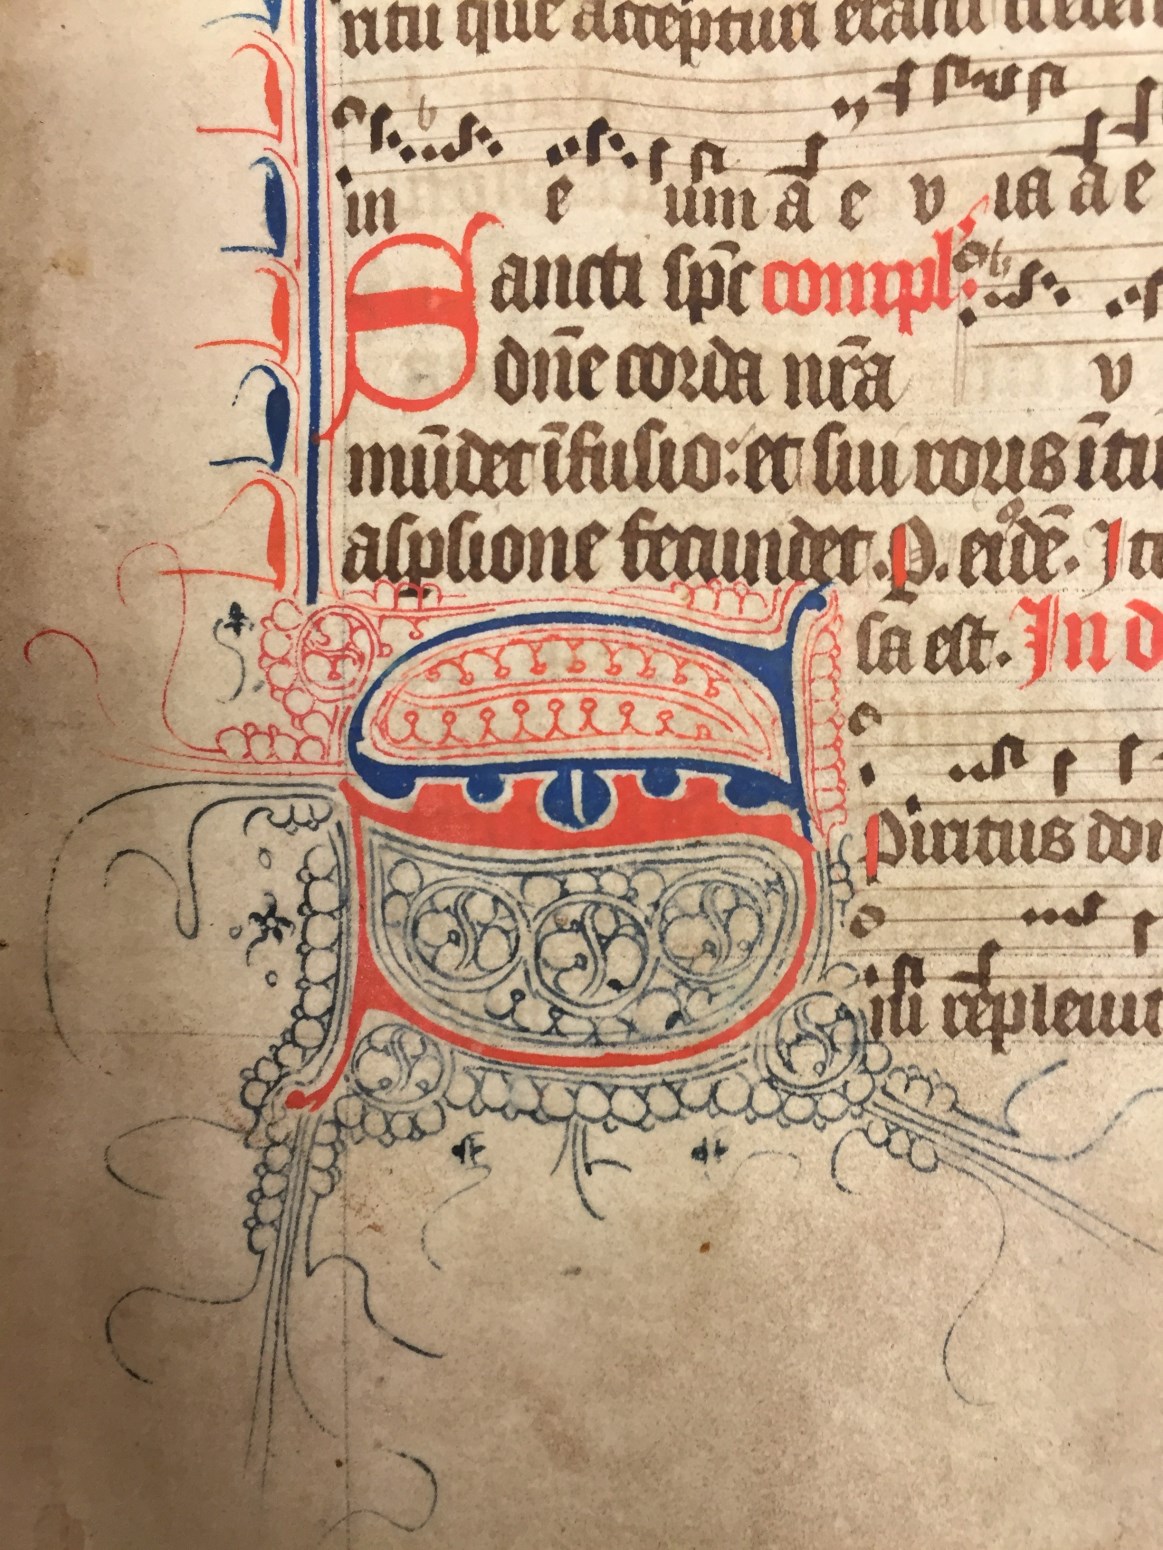 ritu que accepturi erant creden
in e uum a̅ e v ia a̅ e
Sancti sp̅c compl'
dn̅e corda nr̅a v
mu̅det i̅fusio: et sui roris i̅ti
aspsione fecundet. P. eıͦde̅. I
sa est. In d
Spiritus dom
isti re̅pleuit